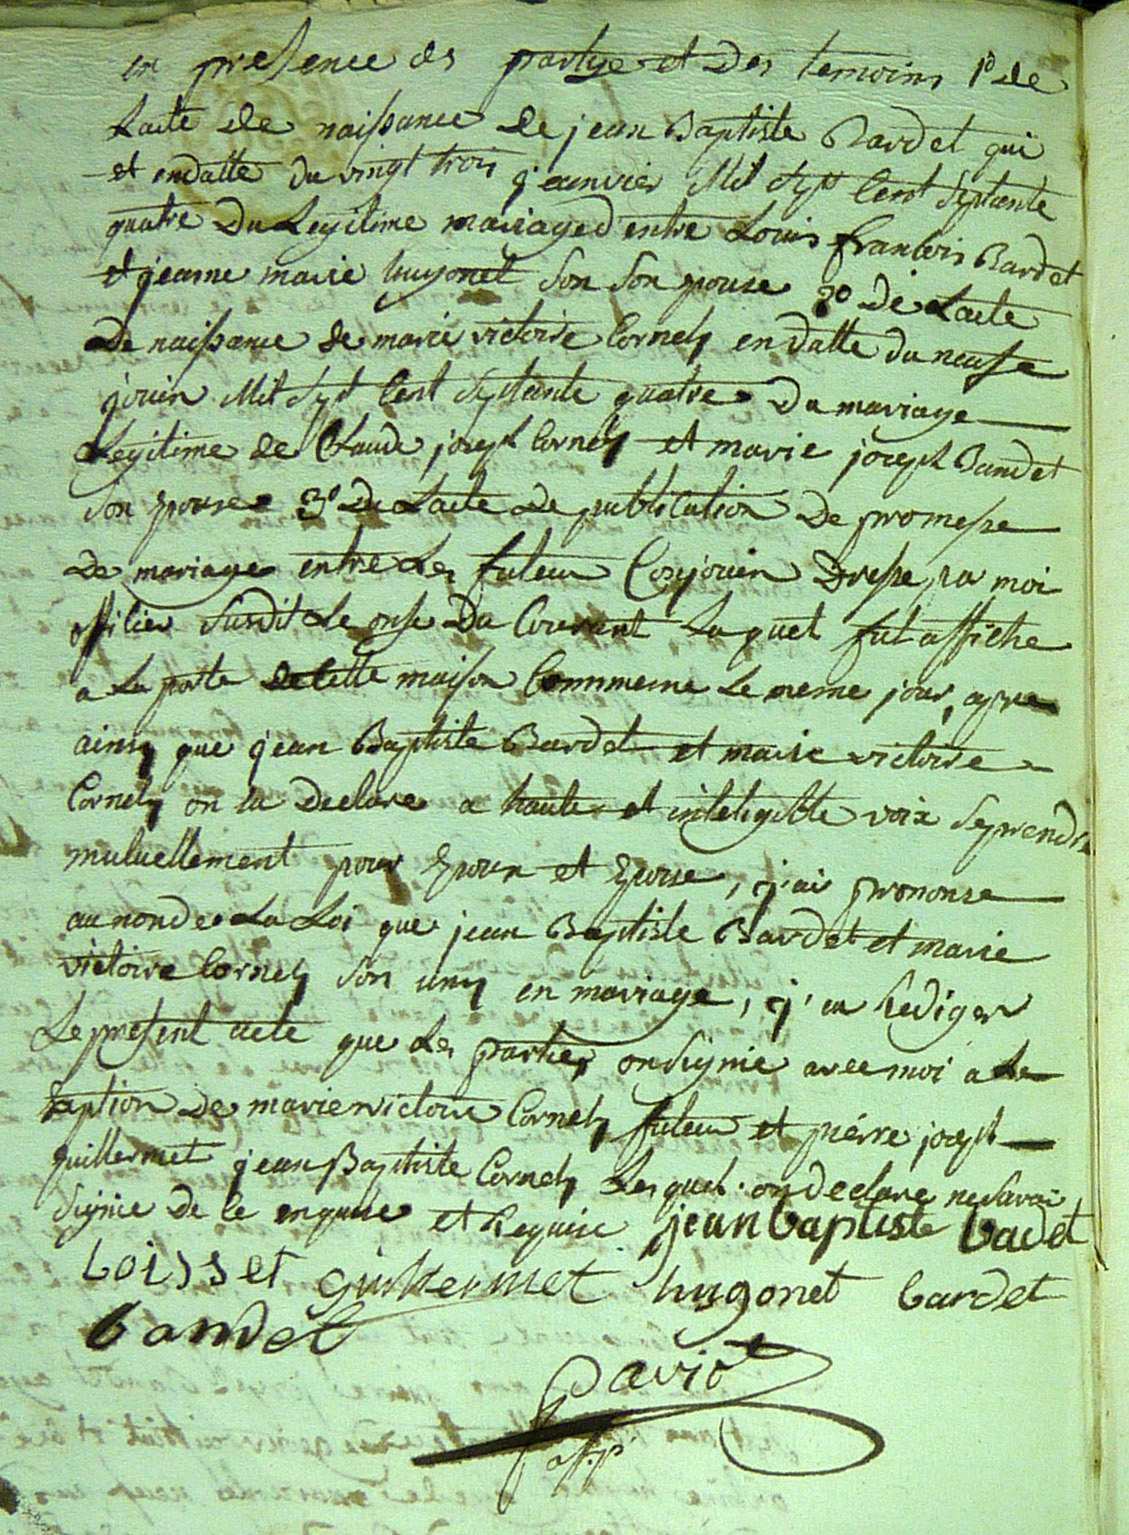 en presence des partye et Des temoins 1° de
Lacte de naissance de jean Baptiste Bardet qui
et endatte du vingt trois jeanvier Mil Sept Cent Septante
quatre Du Legitime mariage d'entre Louis francois Bardet
et jeanne marie hugonet Son Son epouse 2° de Lacte
De naissance de marie victoire Cornely en Datte du neufe
jouin Mil Sept Cent Septante quatre Du mariage
Legitime de Claude joseph Cornely et marie joseph Bandet
Son epouse 3° Du Lacte de publication De promesse
De mariage entre Les futeur Conjouien Dresse par moi
officier Susdit Le onse Du Courant Laquel fut affiche
a La porte de Cette maison Commune Le meme jour, apre
ainsy que jean Baptiste Bardet et marie victoire
Cornely on la Declare a haute et inteligible voix Seprendre
mutuellement pour Epoux et Epouse, j'ai prononse
au nonde La Loi que jean Baptiste Bardet et marie
victoire Cornely Son uny en mariage, j'ai Rediger
Le present acte que Les parties on Signie avec moi a Le
xaption De marie victoire Cornely futeur et pierre joseph
guillermet jean Baptiste Cornely Lesquel on declare ne Savoi
Signie De Ce enquie et Requise jean baptiste badet
Loisset guillermet hugonet bardet
bandet
Paviot
off.p